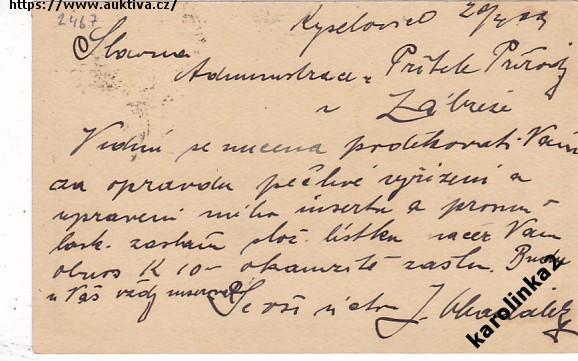 https://www.auktiva.cz/
2467
Kyselovice 20/
Slavná
Administrace „Přítel Přírody
v Zábřeze
Vidím se nucena poděkovati Vám
za opravdu pečlivé vyřízení a
upravení mého insertu a prosím
lask. zaslati slož. lístku načež Vám
obnos K 10- okamžitě zašlu. Budu
u Vás vždy
Se vší úctou J.
karolinka2